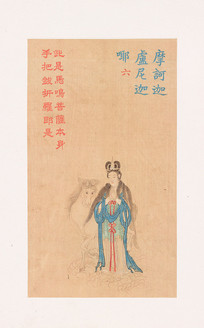 摩訶迦
盧尼迦
哪六
此是馬鳴菩薩本身
手把鈸折羅即是